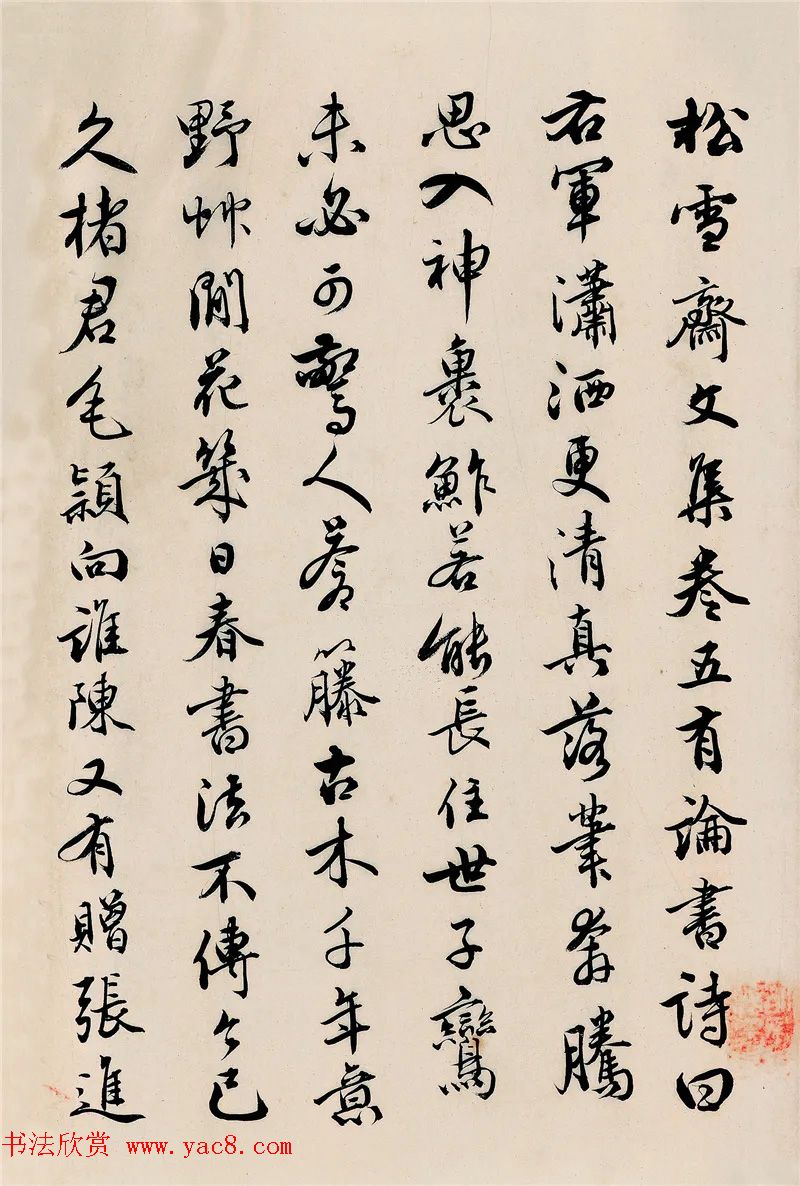 松雪齋文集卷五有論書詩曰
右軍瀟洒更清真落筆奔騰
思入神裹鮓若能長住世子鸞
未必可驚人蒼籐古木千年意
野艸閒花幾日春書法不傳今已
久楮君毛穎向誰陳又有贈張進
书法欣赏 www.yac8.com